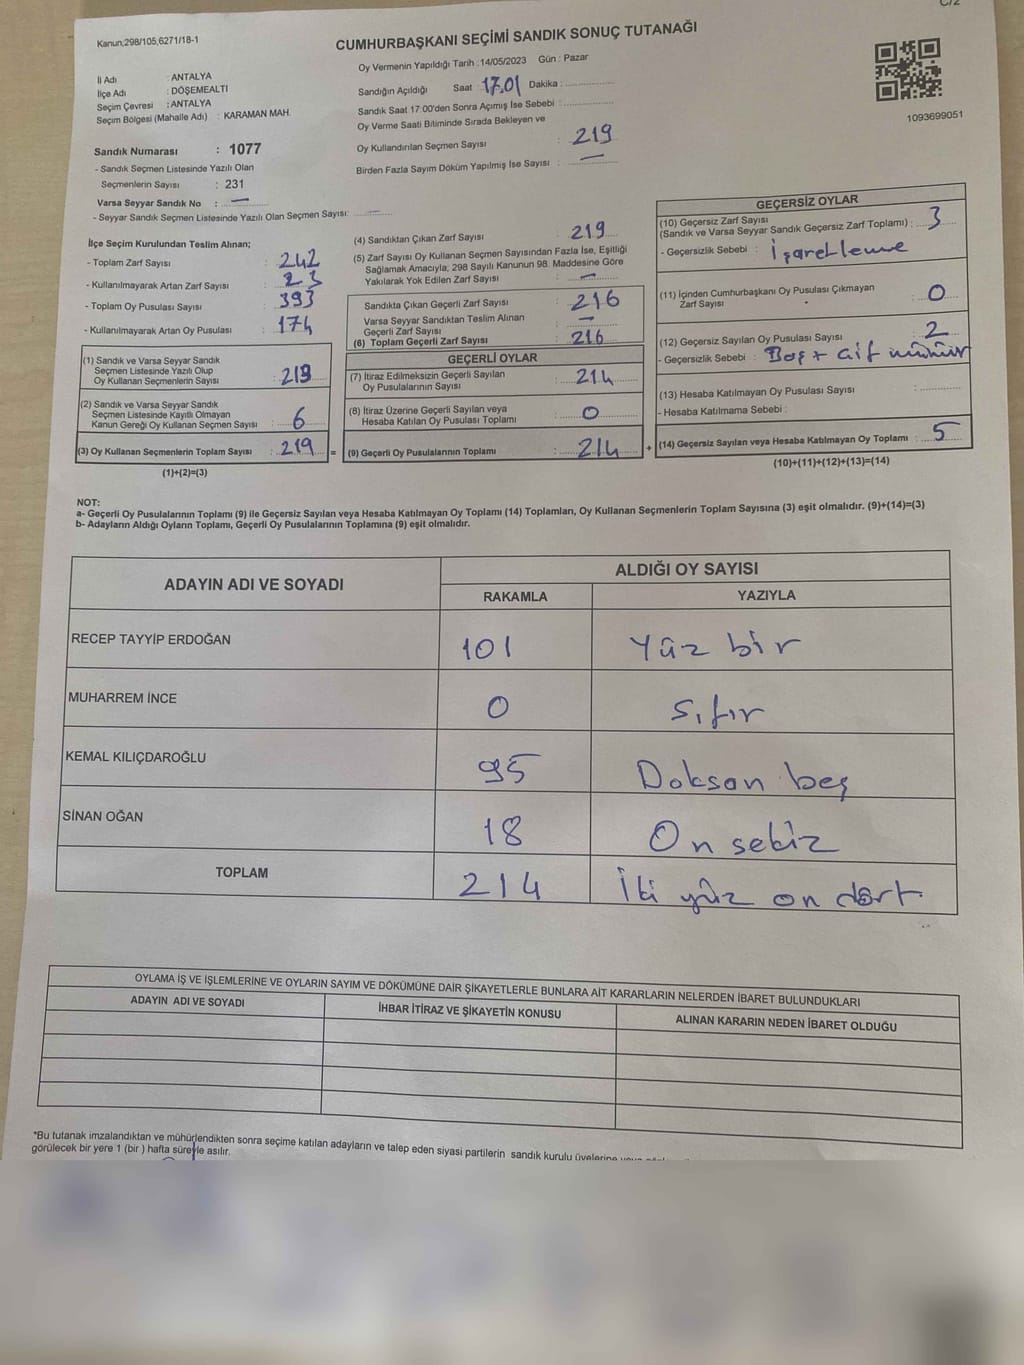 C/2
Kanun;298/105,6271/18-1
CUMHURBAŞKANI SEÇİMİ SANDIK SONUÇ TUTANAĞI
İl Adı : ANTALYA
İlçe Adı : DÖŞEMEALTI
Seçim Çevresi : ANTALYA
Seçim Bölgesi (Mahalle Adı) : KARAMAN MAH.
Sandık Numarası : 1077
- Sandık Seçmen Listesinde Yazılı Olan
Seçmenlerin Sayısı : 231
Varsa Seyyar Sandık No : —
- Seyyar Sandık Seçmen Listesinde Yazılı Olan Seçmen Sayısı: —
Oy Vermenin Yapıldığı Tarih :14/05/2023 Gün : Pazar
Sandığın Açıldığı Saat : 17.01 Dakika :
Sandık Saat 17:00'den Sonra Açımış İse Sebebi :
Oy Verme Saati Bitiminde Sırada Bekleyen ve
Oy Kullandırılan Seçmen Sayısı : 219
Birden Fazla Sayım Döküm Yapılmış İse Sayısı : —
1093699051
İlçe Seçim Kurulundan Teslim Alınan;
- Toplam Zarf Sayısı : 242
- Kullanılmayarak Artan Zarf Sayısı : 23
- Toplam Oy Pusulası Sayısı : 393
- Kullanılmayarak Artan Oy Pusulası : 174
(1) Sandık ve Varsa Seyyar Sandık
Seçmen Listesinde Yazılı Olup
Oy Kullanan Seçmenlerin Sayısı : 213
(2) Sandık ve Varsa Seyyar Sandık
Seçmen Listesinde Kayıtlı Olmayan
Kanun Gereği Oy Kullanan Seçmen Sayısı : 6
(3) Oy Kullanan Seçmenlerin Toplam Sayısı : 219 =
(1)+(2)=(3)
(4) Sandıktan Çıkan Zarf Sayısı : 219
(5) Zarf Sayısı Oy Kullanan Seçmen Sayısından Fazla İse, Eşitliği
Sağlamak Amacıyla; 298 Sayılı Kanunun 98. Maddesine Göre
Yakılarak Yok Edilen Zarf Sayısı : —
Sandıkta Çıkan Geçerli Zarf Sayısı : 216
Varsa Seyyar Sandıktan Teslim Alınan
Geçerli Zarf Sayısı : —
(6) Toplam Geçerli Zarf Sayısı : 216
GEÇERLİ OYLAR
(7) İtiraz Edilmeksizin Geçerli Sayılan
Oy Pusulalarının Sayısı : 214
(8) İtiraz Üzerine Geçerli Sayılan veya
Hesaba Katılan Oy Pusulası Toplamı : 0
(9) Geçerli Oy Pusulalarının Toplamı : 214 +
GEÇERSİZ OYLAR
(10) Geçersiz Zarf Sayısı
(Sandık ve Varsa Seyyar Sandık Geçersiz Zarf Toplamı) : 3
- Geçersizlik Sebebi : İşaretleme
(11) İçinden Cumhurbaşkanı Oy Pusulası Çıkmayan
Zarf Sayısı : 0
(12) Geçersiz Sayılan Oy Pusulası Sayısı : 2
- Geçersizlik Sebebi : Boş + Çift mühür
(13) Hesaba Katılmayan Oy Pusulası Sayısı :
- Hesaba Katılmama Sebebi :
(14) Geçersiz Sayılan veya Hesaba Katılmayan Oy Toplamı : 5
(10)+(11)+(12)+(13)=(14)
NOT:
a- Geçerli Oy Pusulalarının Toplamı (9) ile Geçersiz Sayılan veya Hesaba Katılmayan Oy Toplamı (14) Toplamları, Oy Kullanan Seçmenlerin Toplam Sayısına (3) eşit olmalıdır. (9)+(14)=(3)
b- Adayların Aldığı Oyların Toplamı, Geçerli Oy Pusulalarının Toplamına (9) eşit olmalıdır.
ADAYIN ADI VE SOYADI
ALDIĞI OY SAYISI
RAKAMLA YAZIYLA
RECEP TAYYİP ERDOĞAN 101 Yüz bir
MUHARREM İNCE 0 Sıfır
KEMAL KILIÇDAROĞLU 95 Doksan beş
SİNAN OĞAN 18 On sekiz
TOPLAM 214 İki yüz on dört
OYLAMA İŞ VE İŞLEMLERİNE VE OYLARIN SAYIM VE DÖKÜMÜNE DAİR ŞİKAYETLERLE BUNLARA AİT KARARLARIN NELERDEN İBARET BULUNDUKLARI
ADAYIN ADI VE SOYADI İHBAR İTİRAZ VE ŞİKAYETİN KONUSU ALINAN KARARIN NEDEN İBARET OLDUĞU
*Bu tutanak imzalandıktan ve mühürlendikten sonra seçime katılan adayların ve talep eden siyasi partilerin sandık kurulu üyelerine
görülecek bir yere 1 (bir ) hafta süreyle asılır.